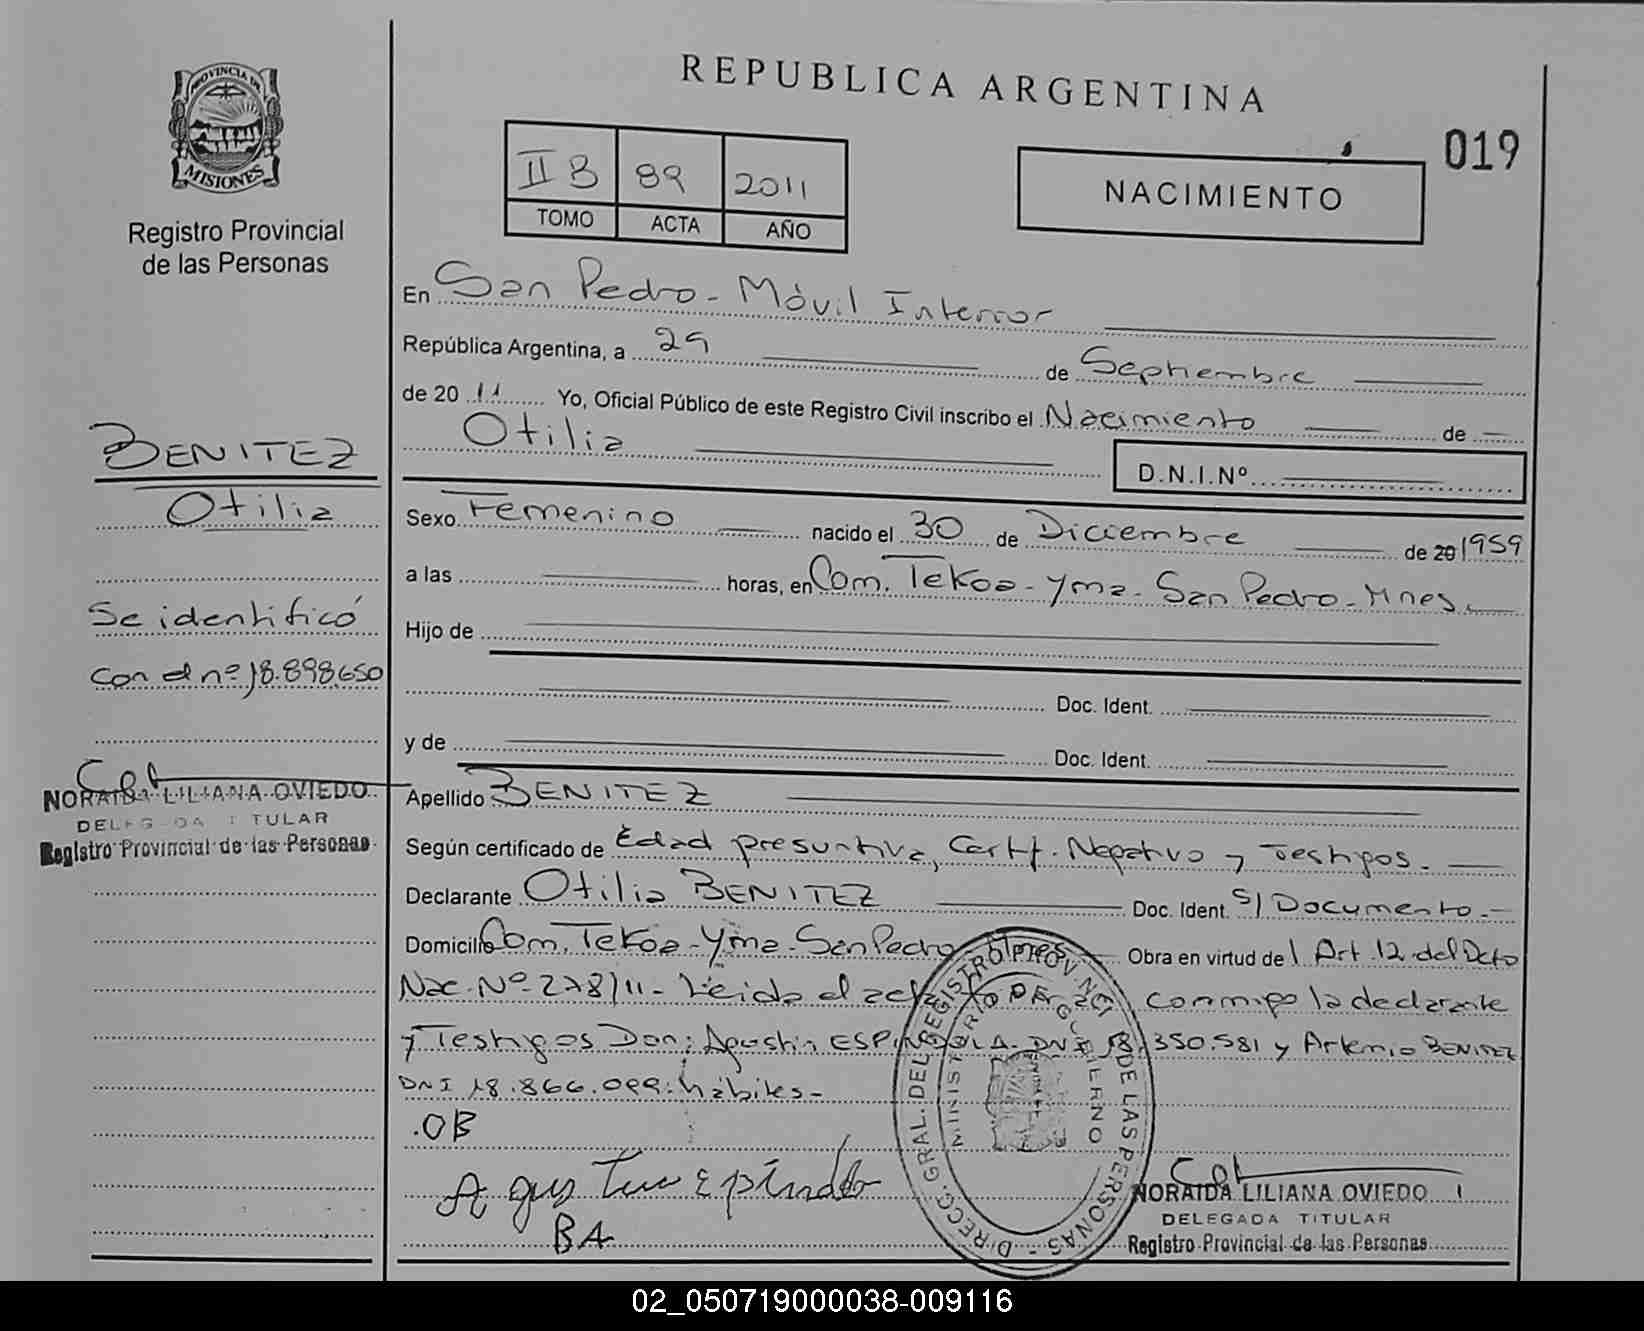 PROVINCIA DE
MISIONES
Registro Provincial
de las Personas
REPUBLICA ARGENTINA
019
II B 89 2011
TOMO ACTA AÑO
NACIMIENTO
En San Pedro - Móvil Interior
República Argentina, a 29 de Septiembre
de 20 11 Yo, Oficial Público de este Registro Civil inscribo el Nacimiento de
Otilia
D.N.I.Nº
Sexo Femenino nacido el 30 de Diciembre de 20 1959
a las horas, en Com. Tekoa - Yma - San Pedro - Mnes.
Hijo de
Doc. Ident.
y de Doc. Ident.
Apellido BENITEZ
Según certificado de Edad presuntiva, Cert. Negativo y Testigos.
Declarante Otilia BENITEZ Doc. Ident. S/ Documento.-
Domicilio Com. Tekoa - Yma - San Pedro Mnes Obra en virtud del Art. 12 del Dcto
Nac. Nº 278/11 - Leida el acta conmigo la declarante
y Testigos Don: Agustin ESPINDOLA DNI 18.350.581 y Artemio BENITEZ
DNI 18.866.099: hábiles -
.OB
Agustin Epindola
BA
BENITEZ
Otilia
Se identificó
con el nº 18.898.650
NORAIDA LILIANA OVIEDO
DELEGADA TITULAR
Registro Provincial de las Personas
DIRECC. GRAL. DEL REGISTRO PROVINCIAL DE LAS PERSONAS -
MINISTERIO DE GOBIERNO
NORAIDA LILIANA OVIEDO
DELEGADA TITULAR
Registro Provincial de las Personas
02_050719000038-009116